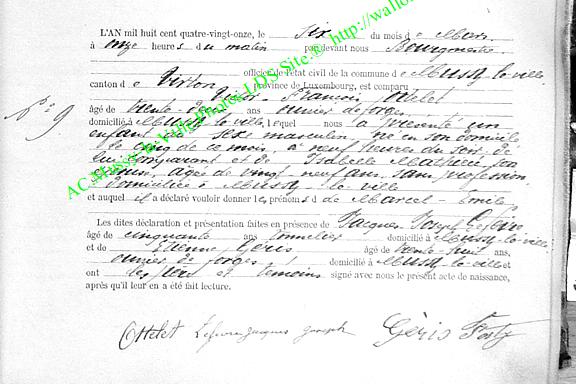 L'AN mil huit cent quatre-vingt-onze, le six du mois de Mars
à onze heures du matin par devant nous Bourgmestre
officier de l'état civil de la commune de Mussy-la-ville
canton de Virton province de Luxembourg, est comparu
N° 9
François Ottelet
âgé de trente- ans ouvrier de forges
domicilié à Mussy-la-ville, lequel nous a présenté un
enfant du sexe masculin né en son domicile
le cinq de ce mois, à neuf heures du soir, de
lui comparant et de Isabelle Mathieu, son
épouse, âgée de vingt neuf ans, sans profession
domiciliée à Mussy-la-ville
et auquel il a déclaré vouloir donner les prénoms de Marcel-Emile
Les dites déclaration et présentation faites en présence de Jacques Joseph Lefèvre
âgé de cinquante ans domicilié à Mussy-la-ville
et de Etienne Géris âgé de trente-huit ans,
ouvrier de forges domicilié à Mussy-la-ville et
ont les père et témoins signé avec nous le présent acte de naissance,
après qu'il leur en a été fait lecture.
Ottelet Lefevre jacques joseph Géris
AC Mussy-la-Ville Photo L.D.S Site @ http://wallo